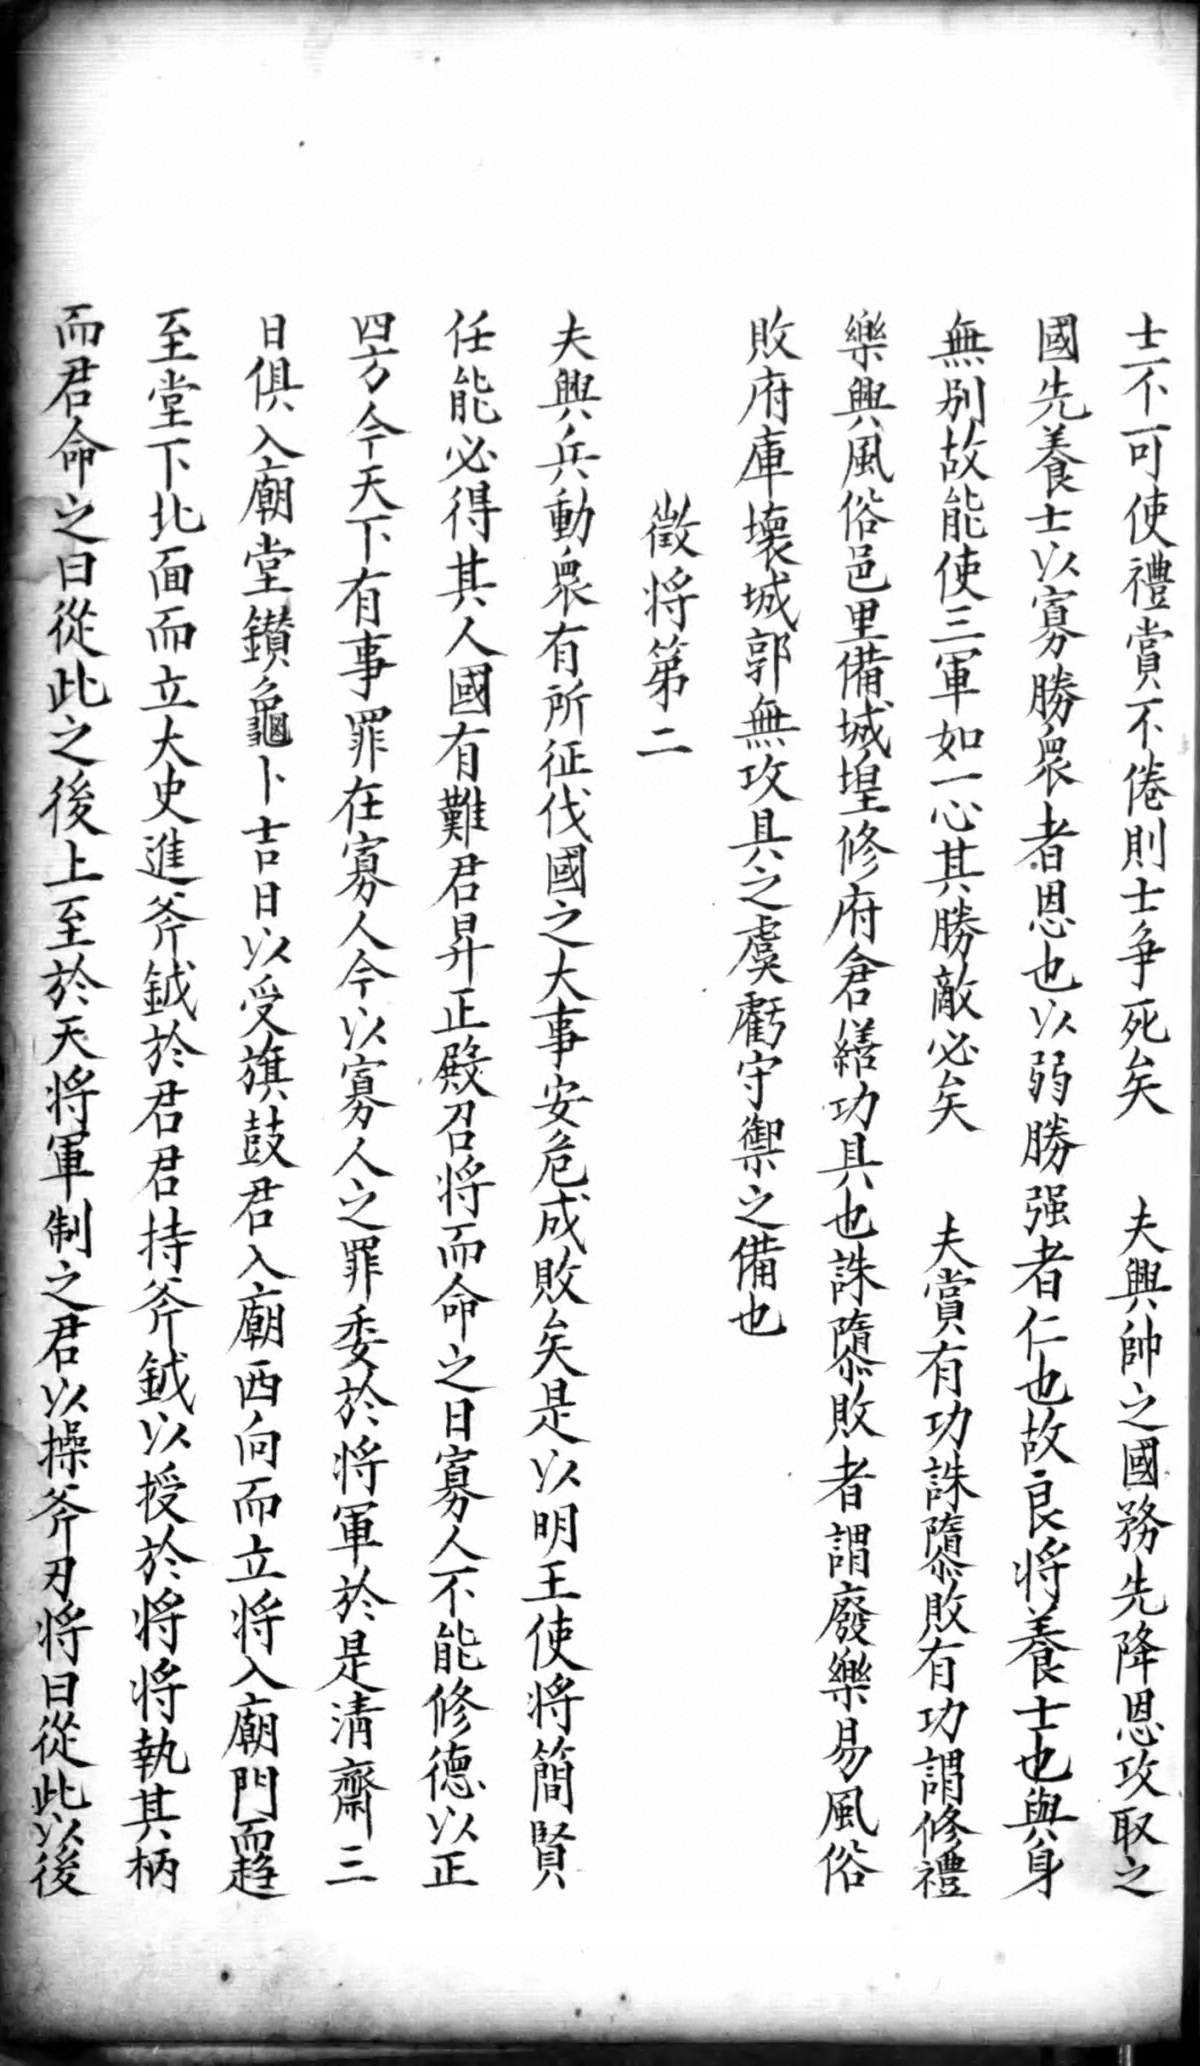 士不可使禮賞不倦則士爭死矣　夫興帥之國務先降恩攻取之
國先養士以寡勝衆者恩也以弱勝强者仁也故良将養士也與身
無別故能使三軍如一心其勝敵必矣　夫賞有功誅隳敗有功謂修禮
樂興風俗邑里備城堭修府倉繕功具也誅隳敗者謂廢樂易風俗
敗府庫壞城郭無攻具之虞虧守禦之備也
徵将第二
夫興兵動衆有所征伐國之大事安危成敗矣是以明王使将簡賢
任能必得其人國有難君昇正殿召将而命之日寡人不能修德以正
四方今天下有事罪在寡人今以寡人之罪委於将軍於是清齋三
日俱入廟堂鑚龜卜吉日以受旗鼓君入廟西向而立将入廟門而趋
至堂下北面而立大史進斧鉞於君君持斧鉞以授於将将執其柄
而君命之曰從此之後上至於天将軍制之君以操斧刃将曰從此以後